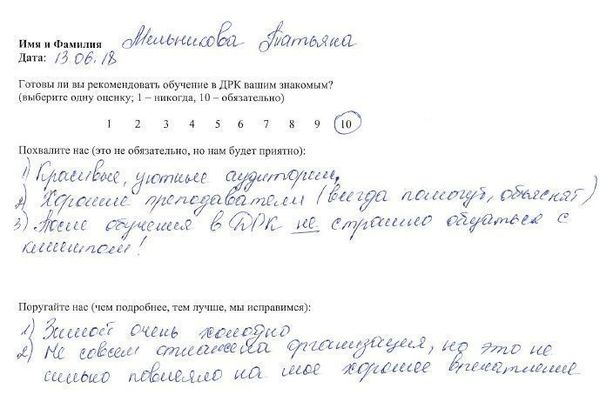 Имя и Фамилия Мельникова Татьяна
Дата: 13.06.18
Готовы ли вы рекомендовать обучение в ДРК вашим знакомым?
(выберите одну оценку; 1 – никогда, 10 – обязательно)
1 2 3 4 5 6 7 8 9 10
Похвалите нас (это не обязательно, но нам будет приятно):
1) Красивые, уютные аудитории,
2) Хорошие преподаватели (всегда помогут, объяснят)
3) После обучения в ДРК не страшно общаться с
клиентом!
Поругайте нас (чем подробнее, тем лучше, мы исправимся):
1) Зимой очень холодно
2) Не совсем отлажена организация, но это не
сильно повлияло на мое хорошее впечатление